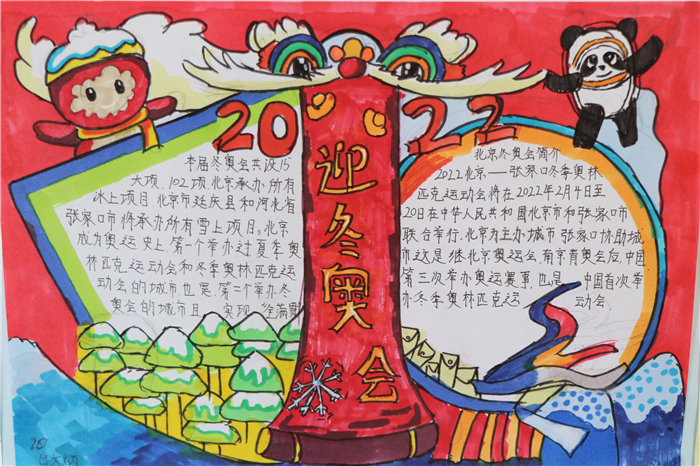 2022
迎冬奥会
本届冬奥会共设15
大项，102项北京承办所有
冰上项目 北京市延庆县和河北省
张家口市将承办所有雪上项目。北京
成为奥运史上第一个举办过夏季奥
林匹克运动会和冬季奥林匹克运
动会的城市也是 第三个举办冬
奥会的城市且 实现 满贯
北京冬奥会简介
2022北京——张家口冬季奥林
匹克运动会将在2022年2月4日至
20日在中华人民共和国北京市和张家口市
联合举行，北京为主办城市 张家口协助城
市这是 继北京奥运会 南京青奥会后，中国
第三次举办奥运赛事，也是 中国首次举
办冬季奥林匹克运 动会
20